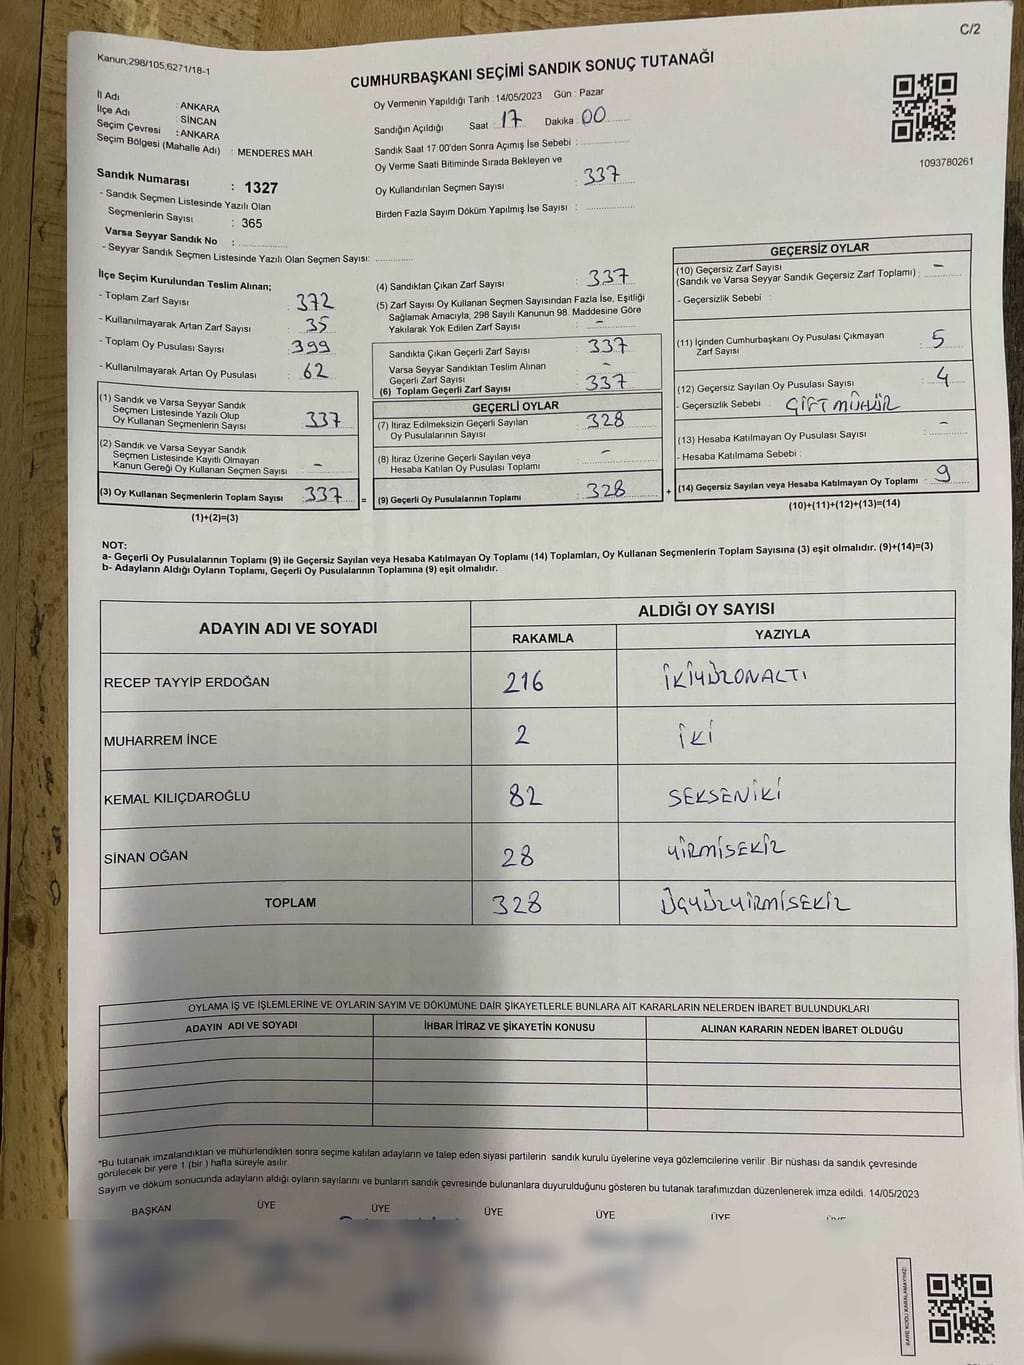 C/2
Kanun;298/105,6271/18-1
CUMHURBAŞKANI SEÇİMİ SANDIK SONUÇ TUTANAĞI
İl Adı : ANKARA
İlçe Adı : SİNCAN
Seçim Çevresi : ANKARA
Seçim Bölgesi (Mahalle Adı) : MENDERES MAH
Oy Vermenin Yapıldığı Tarih : 14/05/2023 Gün : Pazar
Sandığın Açıldığı Saat : 17 Dakika : 00
Sandık Saat 17:00'den Sonra Açımış İse Sebebi :
Oy Verme Saati Bitiminde Sırada Bekleyen ve
Oy Kullandırılan Seçmen Sayısı : 337
Birden Fazla Sayım Döküm Yapılmış İse Sayısı :
1093780261
Sandık Numarası : 1327
- Sandık Seçmen Listesinde Yazılı Olan
Seçmenlerin Sayısı : 365
Varsa Seyyar Sandık No :
- Seyyar Sandık Seçmen Listesinde Yazılı Olan Seçmen Sayısı:
İlçe Seçim Kurulundan Teslim Alınan;
- Toplam Zarf Sayısı : 372
- Kullanılmayarak Artan Zarf Sayısı : 35
- Toplam Oy Pusulası Sayısı : 399
- Kullanılmayarak Artan Oy Pusulası : 62
(1) Sandık ve Varsa Seyyar Sandık
Seçmen Listesinde Yazılı Olup
Oy Kullanan Seçmenlerin Sayısı : 337
(2) Sandık ve Varsa Seyyar Sandık
Seçmen Listesinde Kayıtlı Olmayan
Kanun Gereği Oy Kullanan Seçmen Sayısı : -
(3) Oy Kullanan Seçmenlerin Toplam Sayısı : 337 =
(1)+(2)=(3)
(4) Sandıktan Çıkan Zarf Sayısı : 337
(5) Zarf Sayısı Oy Kullanan Seçmen Sayısından Fazla İse, Eşitliği
Sağlamak Amacıyla, 298 Sayılı Kanunun 98. Maddesine Göre
Yakılarak Yok Edilen Zarf Sayısı : -
Sandıkta Çıkan Geçerli Zarf Sayısı : 337
Varsa Seyyar Sandıktan Teslim Alınan
Geçerli Zarf Sayısı : -
(6) Toplam Geçerli Zarf Sayısı : 337
GEÇERLİ OYLAR
(7) İtiraz Edilmeksizin Geçerli Sayılan
Oy Pusulalarının Sayısı : 328
(8) İtiraz Üzerine Geçerli Sayılan veya
Hesaba Katılan Oy Pusulası Toplamı : -
(9) Geçerli Oy Pusulalarının Toplamı : 328 +
GEÇERSİZ OYLAR
(10) Geçersiz Zarf Sayısı
(Sandık ve Varsa Seyyar Sandık Geçersiz Zarf Toplamı) : -
- Geçersizlik Sebebi :
(11) İçinden Cumhurbaşkanı Oy Pusulası Çıkmayan
Zarf Sayısı : 5
(12) Geçersiz Sayılan Oy Pusulası Sayısı : 4
- Geçersizlik Sebebi : ÇİFT MÜHÜR
(13) Hesaba Katılmayan Oy Pusulası Sayısı : -
- Hesaba Katılmama Sebebi :
(14) Geçersiz Sayılan veya Hesaba Katılmayan Oy Toplamı : 9
(10)+(11)+(12)+(13)=(14)
NOT:
a- Geçerli Oy Pusulalarının Toplamı (9) ile Geçersiz Sayılan veya Hesaba Katılmayan Oy Toplamı (14) Toplamları, Oy Kullanan Seçmenlerin Toplam Sayısına (3) eşit olmalıdır. (9)+(14)=(3)
b- Adayların Aldığı Oyların Toplamı, Geçerli Oy Pusulalarının Toplamına (9) eşit olmalıdır.
ADAYIN ADI VE SOYADI ALDIĞI OY SAYISI
RAKAMLA YAZIYLA
RECEP TAYYİP ERDOĞAN 216 İKİYÜZONALTI
MUHARREM İNCE 2 İKİ
KEMAL KILIÇDAROĞLU 82 SEKSENİKİ
SİNAN OĞAN 28 YİRMİSEKİZ
TOPLAM 328 ÜÇYÜZYİRMİSEKİZ
OYLAMA İŞ VE İŞLEMLERİNE VE OYLARIN SAYIM VE DÖKÜMÜNE DAİR ŞİKAYETLERLE BUNLARA AİT KARARLARIN NELERDEN İBARET BULUNDUKLARI
ADAYIN ADI VE SOYADI İHBAR İTİRAZ VE ŞİKAYETİN KONUSU ALINAN KARARIN NEDEN İBARET OLDUĞU
*Bu tutanak imzalandıktan ve mühürlendikten sonra seçime katılan adayların ve talep eden siyasi partilerin sandık kurulu üyelerine veya gözlemcilerine verilir .Bir nüshası da sandık çevresinde
görülecek bir yere 1 (bir ) hafta süreyle asılır.
Sayım ve döküm sonucunda adayların aldığı oyların sayılarını ve bunların sandık çevresinde bulunanlara duyurulduğunu gösteren bu tutanak tarafımızdan düzenlenerek imza edildi. 14/05/2023
BAŞKAN ÜYE ÜYE ÜYE ÜYE ÜYE
KARE KODU KARALAMAYINIZ!